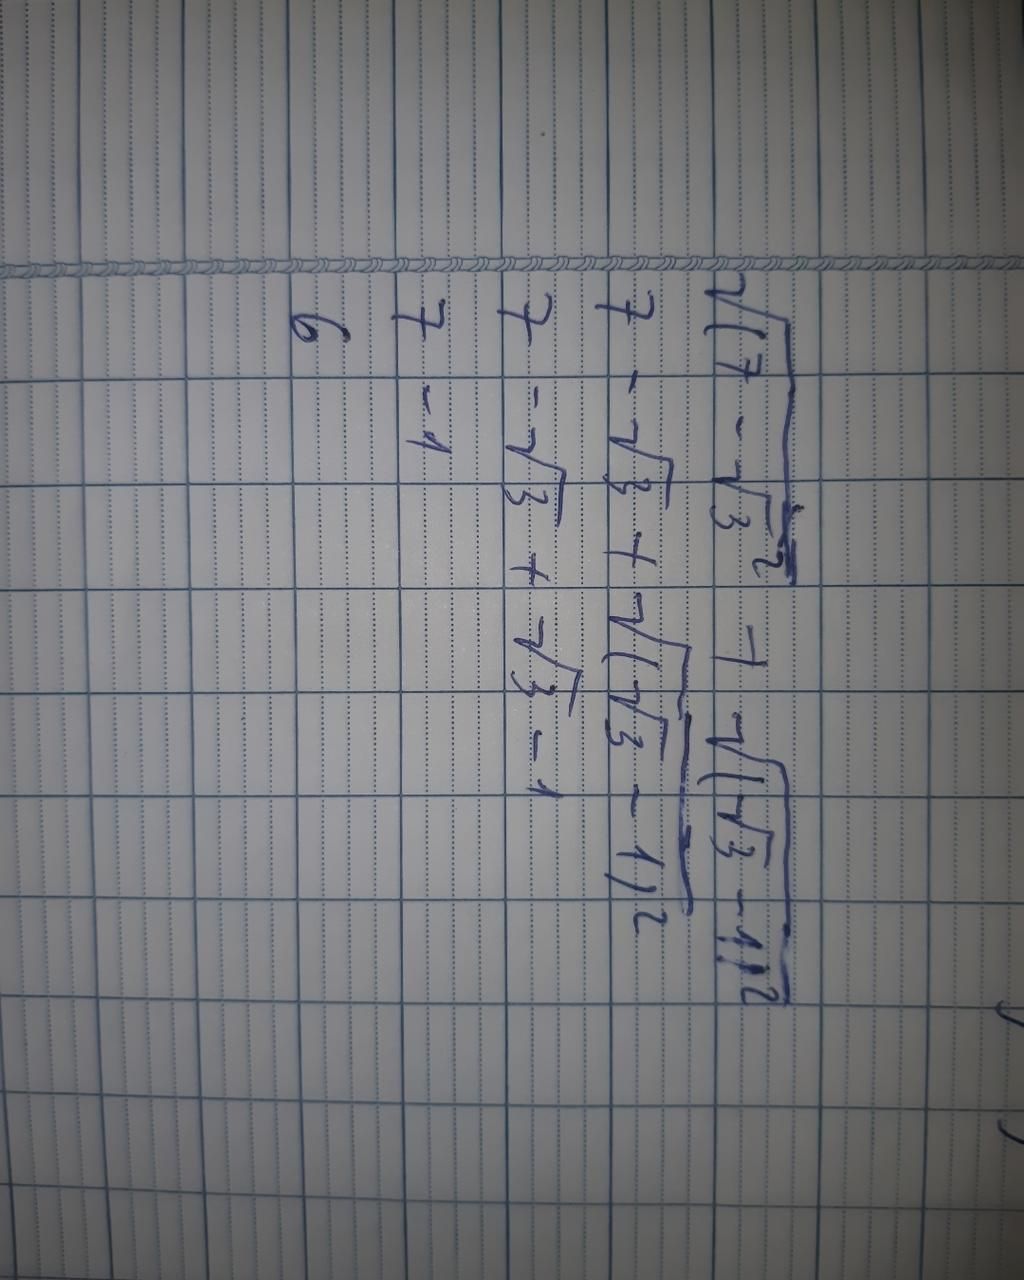 √(7 - √3)² + √(√3 - 1)²
7 - √3 + √(√3 - 1)²
7 - √3 + √3 - 1
7 - 1
6